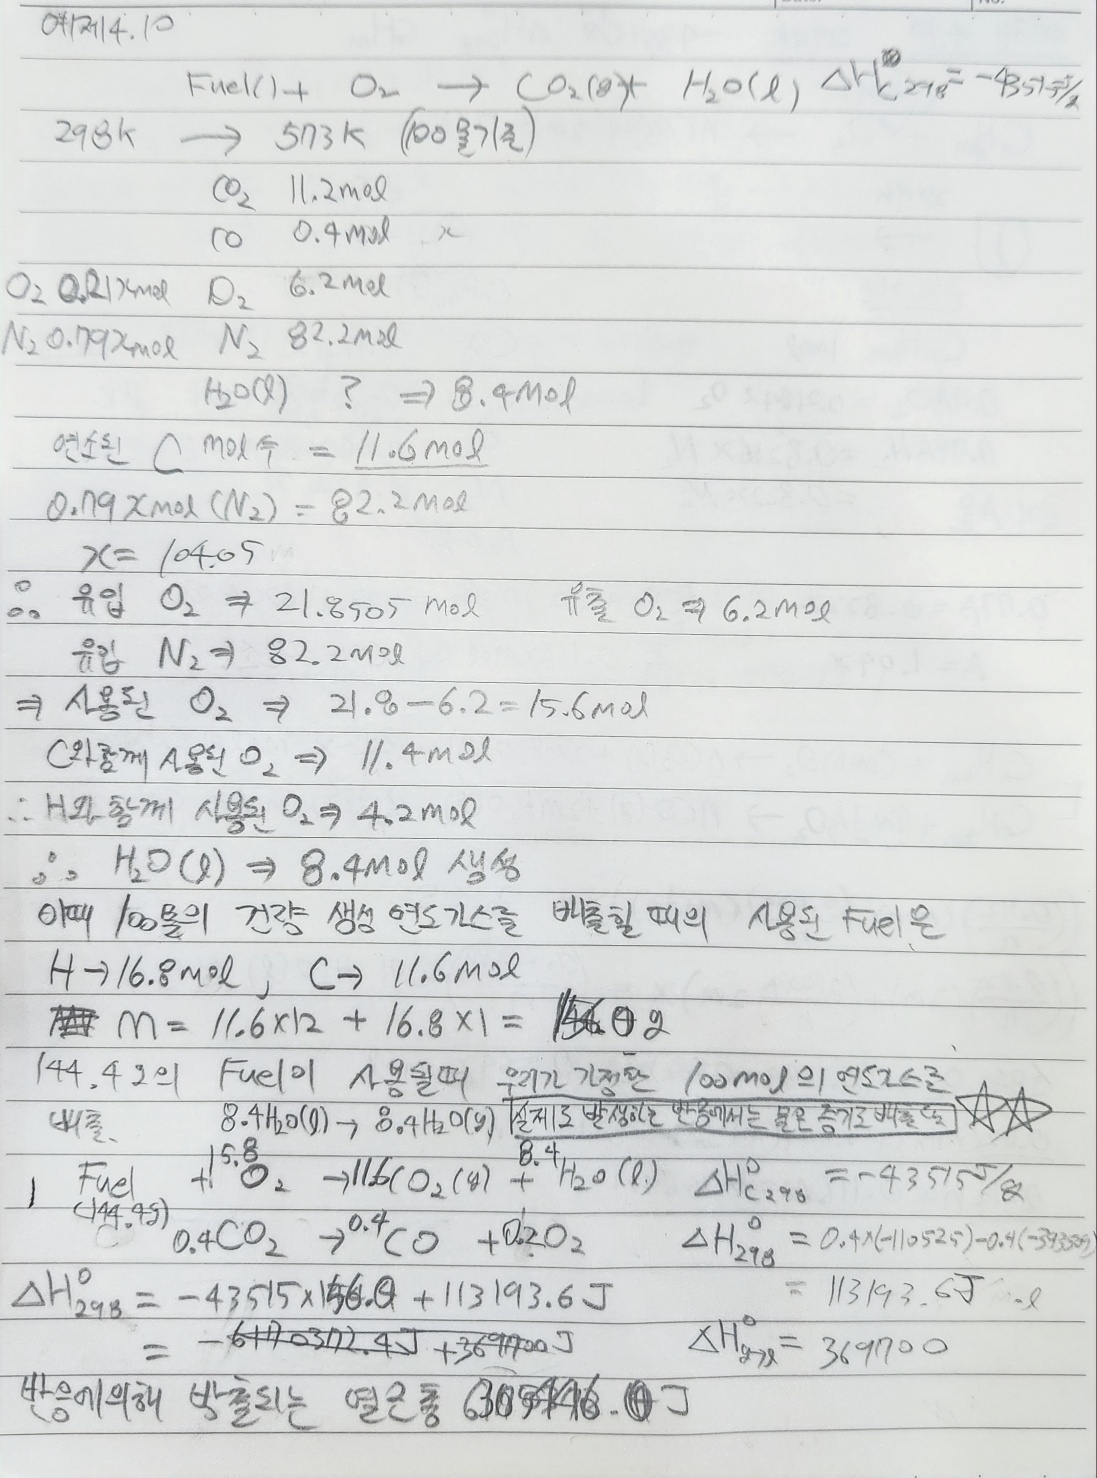 예제4.10
Fuel(l) + O₂ → CO₂(g) + H₂O(l), ΔH°c298 = -43515J/g
298K → 573K (100몰기준)
CO₂ 11.2mol
CO 0.4mol x
O₂ 0.21xmol O₂ 6.2mol
N₂ 0.79xmol N₂ 82.2mol
H₂O(l) ? ⇒ 8.4mol
연소된 C mol수 = 11.6mol
0.79xmol(N₂) = 82.2mol
x = 104.05
∴ 유입 O₂ ⇒ 21.8505mol 유출 O₂ ⇒ 6.2mol
유입 N₂ ⇒ 82.2mol
⇒ 사용된 O₂ ⇒ 21.8-6.2=15.6mol
C와함께 사용된 O₂ ⇒ 11.4mol
∴ H와 함께 사용된 O₂ ⇒ 4.2mol
∴ H₂O(l) ⇒ 8.4mol 생성
이때 100몰의 건량 생성 연도가스를 배출할 때의 사용된 Fuel은
H → 16.8mol, C → 11.6mol
m = 11.6×12 + 16.8×1 = g
144.4g의 Fuel이 사용될때 우리가 가정한 100mol의 연도가스를
배출. 8.4H₂O(l) → 8.4H₂O(g) 실제로 발생하는 반응에서는 물은 증기로 배출됨 ☆☆
1 Fuel + 15.8O₂ → 11.6CO₂(g) + 8.4H₂O(l) ΔH°c298 = -43515J/g
0.4CO₂ → 0.4CO + 0.2O₂ ΔH°298 = 0.4×(-110525)-0.4(-393509)
ΔH°298 = -43515× + 113193.6J = 113193.6J
= -6170372.4J + 369700J ΔH°298 = 369700
반응에의해 방출되는 열은총 J